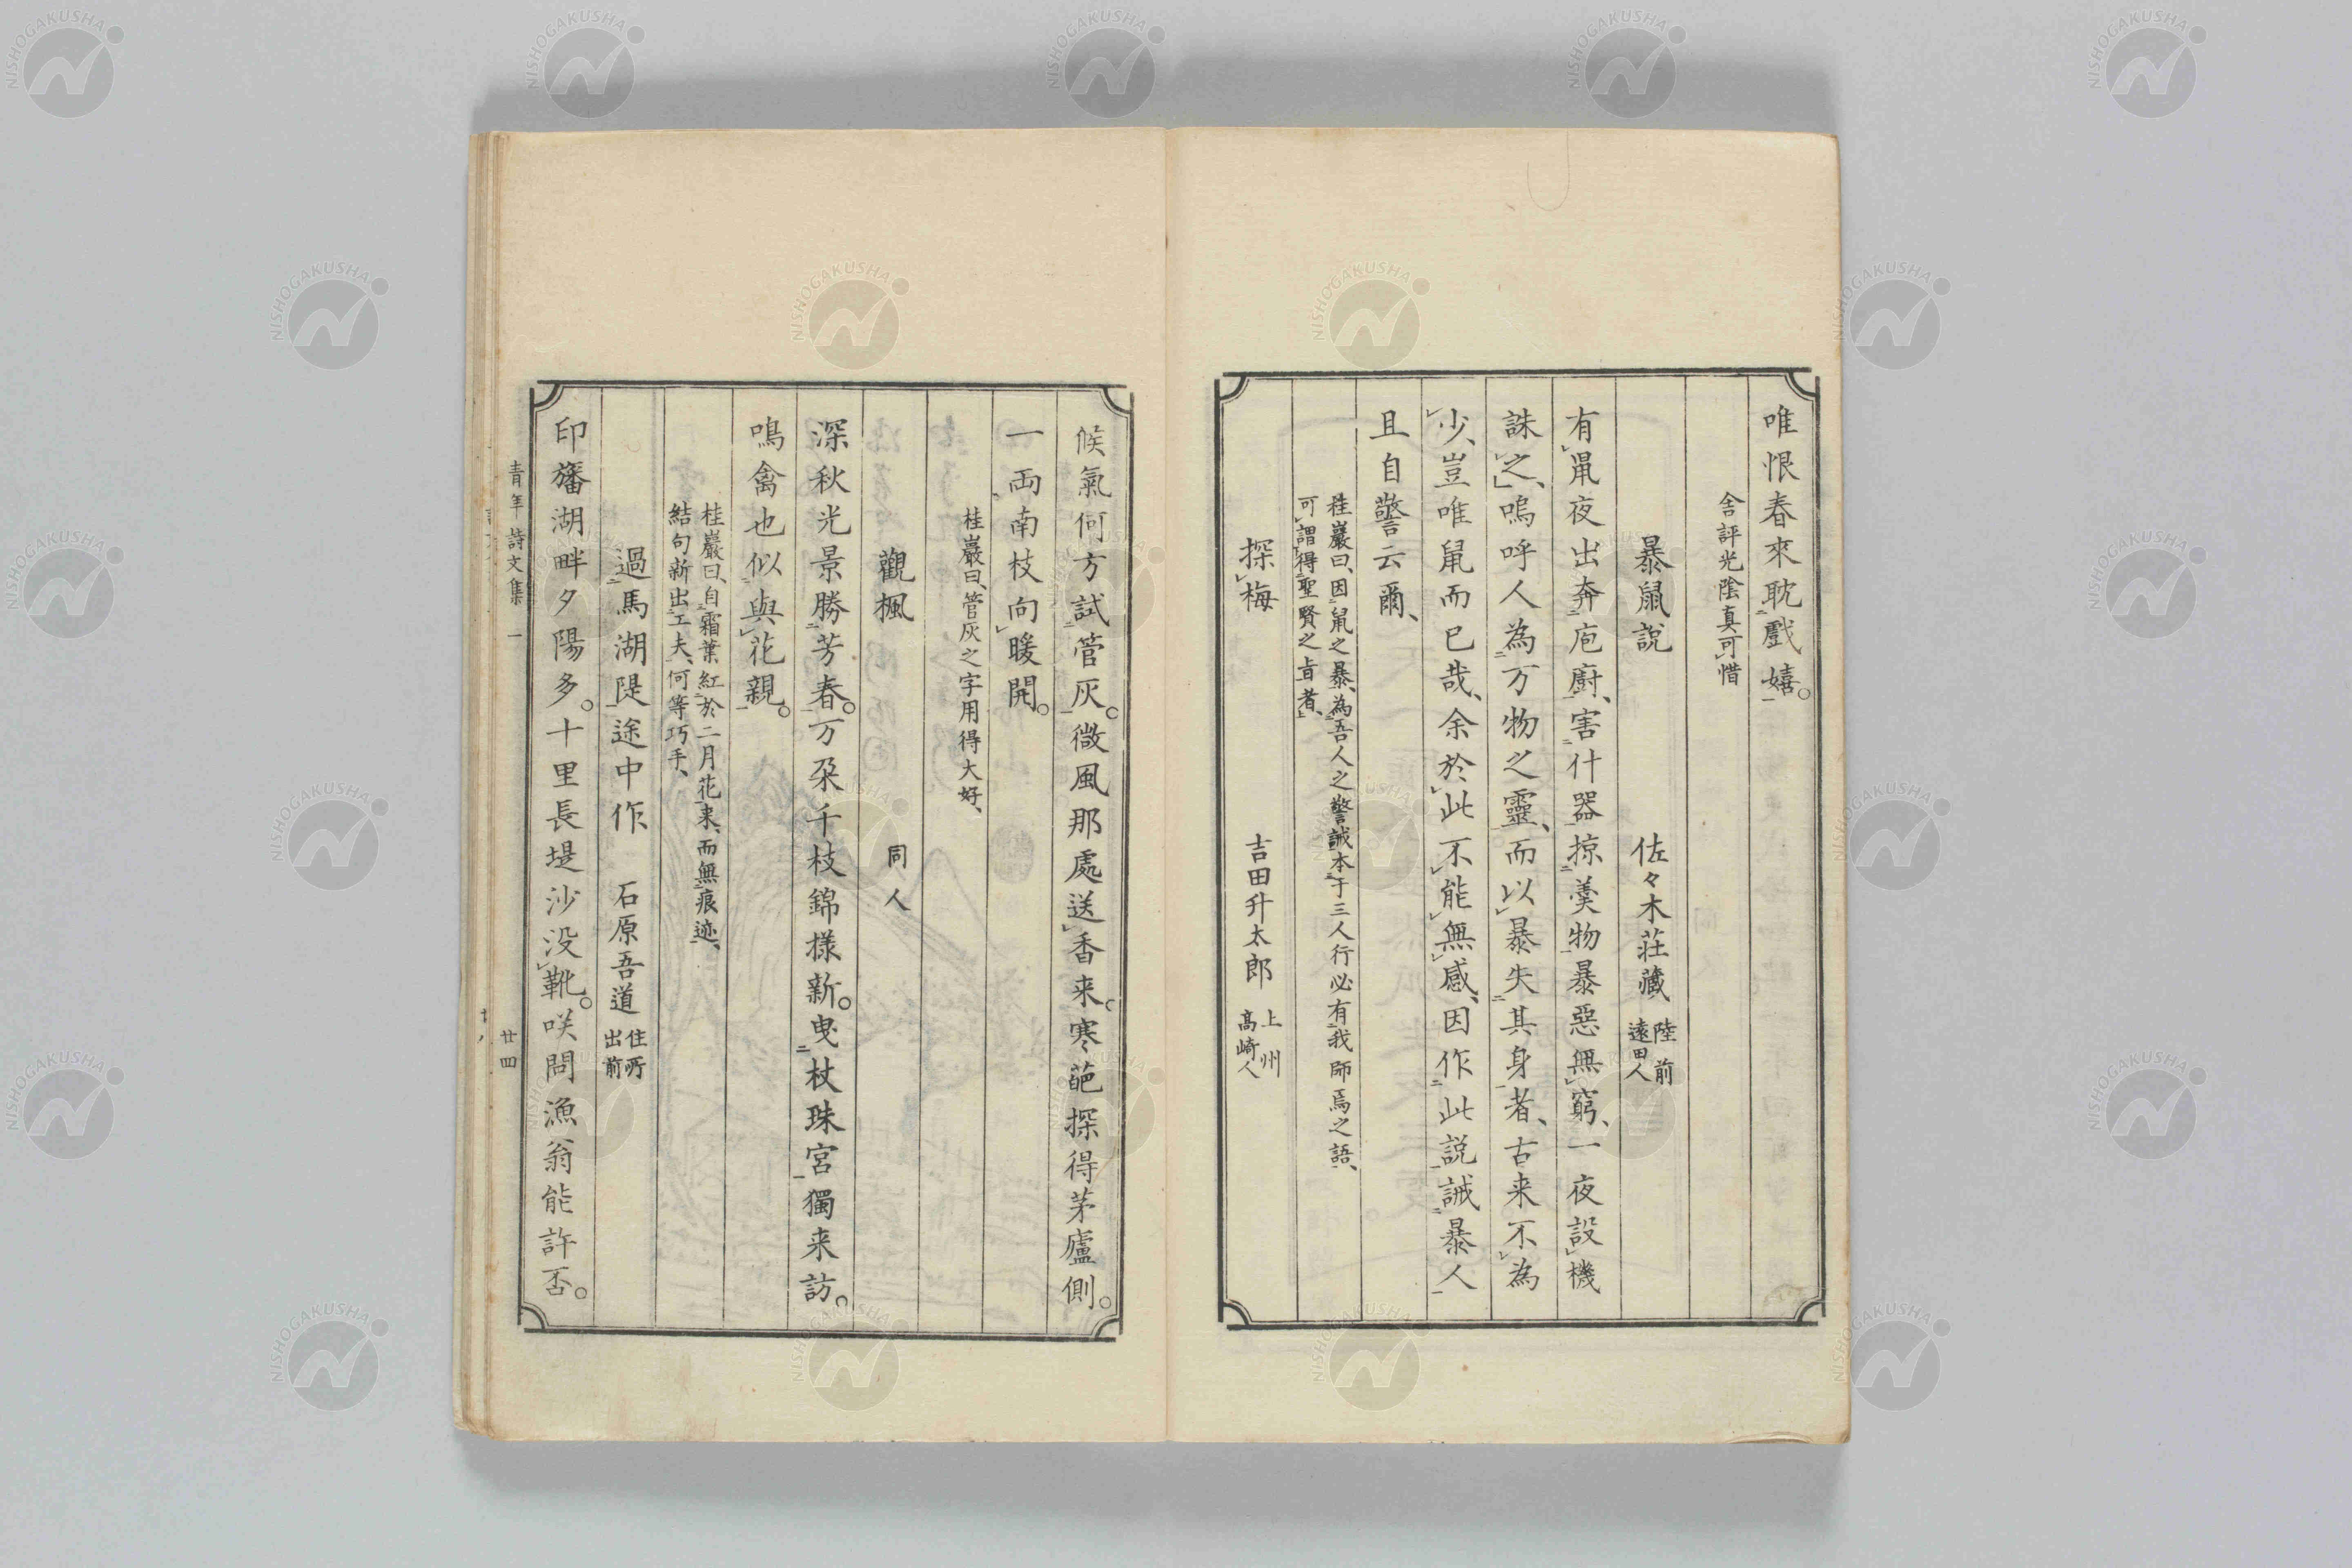 唯恨春來耽戲嬉。
舍評光陰真可惜
暴鼠說 佐々木荘藏 陸前遠田人
有鼠夜出奔庖廚、害什器掠羹物暴惡無窮、一夜設機
誅之、嗚呼人為万物之靈、而以暴失其身者、古来不為
少、豈唯鼠而已哉、余於此不能無感、因作此說誡暴人
且自警云爾、
桂巖曰、因鼠之暴、為吾人之警誡本于三人行必有我師焉之語、
可謂得聖賢之旨者、
探梅 吉田升太郎 上州高崎人
候氣何方試管灰。微風那處送香来。寒葩探得茅廬側。
一両南枝向暖開。
桂巖曰、管灰之字用得大好、
觀楓 同人
深秋光景勝芳春。万朶千枝錦樣新。曳杖珠宮獨来訪。
鳴禽也似與花親。
桂巖曰、自霜葉紅於二月花来、而無痕迹、
結句新出工夫、何等巧手、
過馬湖隄途中作 石原吾道 住所出前
印旛湖畔夕陽多。十里長堤沙没靴。咲問漁翁能許否。
青年詩文集 一 廿四
NISHOGAKUSHA